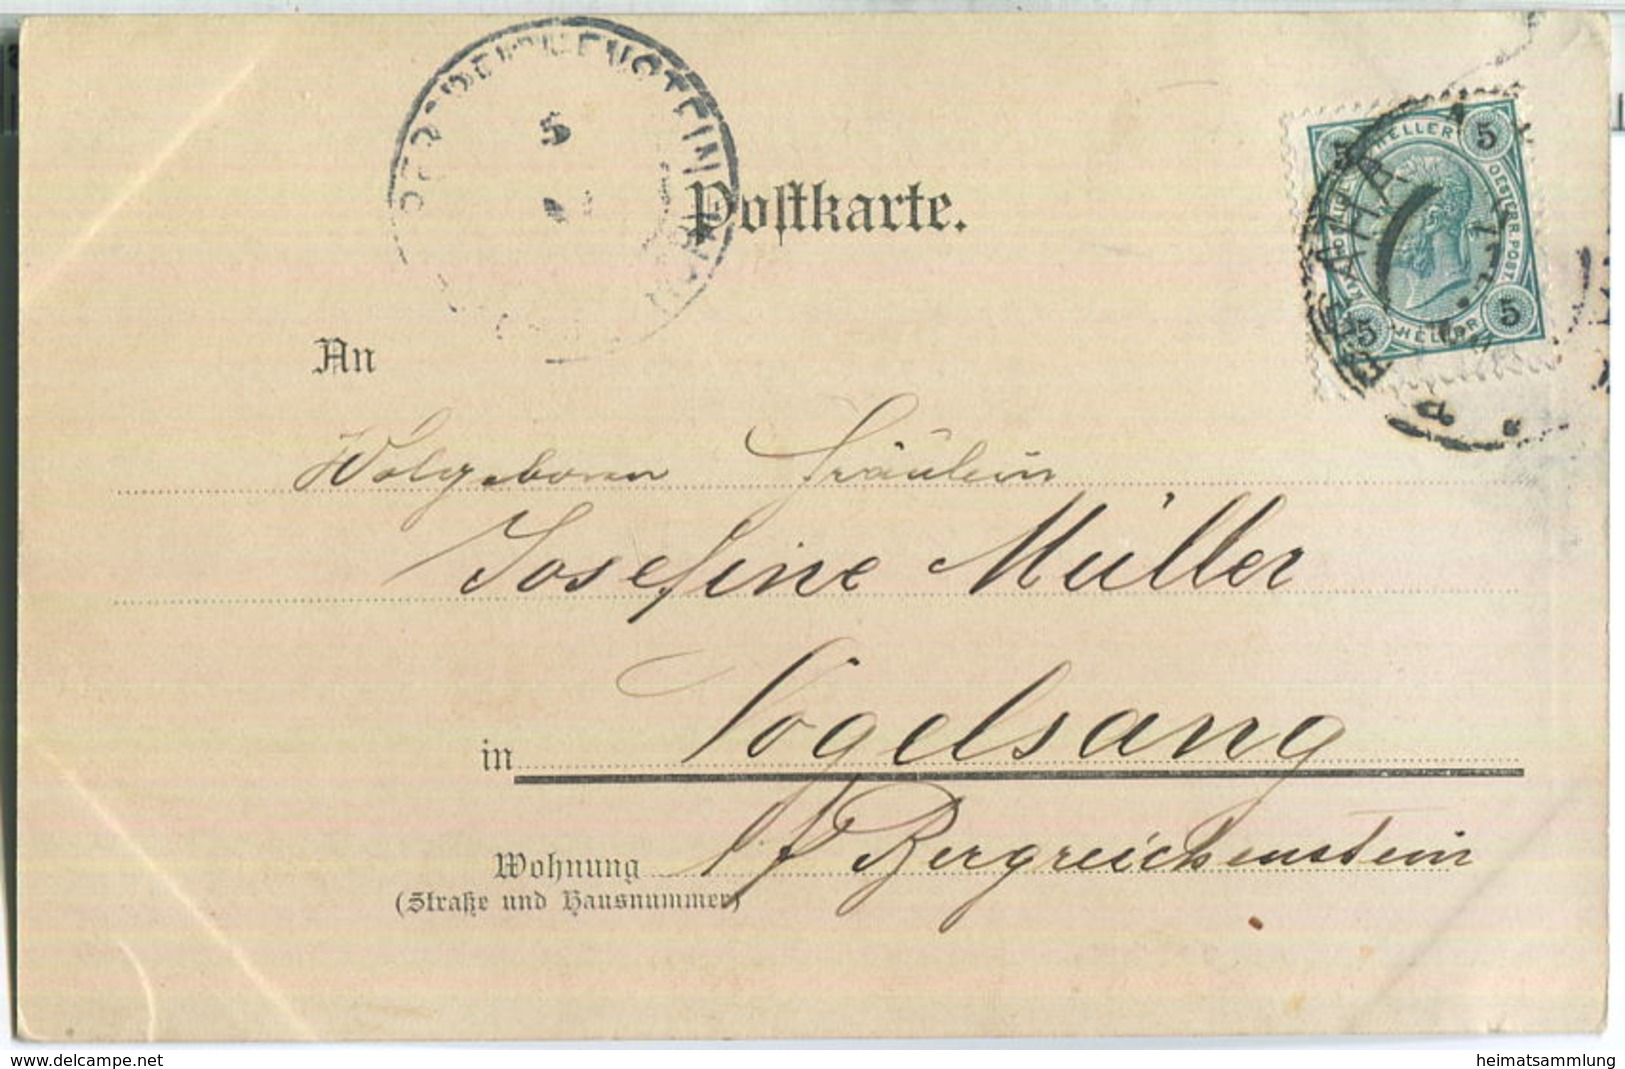 BERGREICHENSTEIN
5
Postkarte.
5 HELLER 5
OESTERR. POST
5 HELLER 5
PRAHA
An
Wolgeboren Fräulein
Josefine Müller
in Vogelsang
Wohnung b/ Bergreichenstein
(Straße und Hausnummer)
www.delcampe.net
heimatsammlung